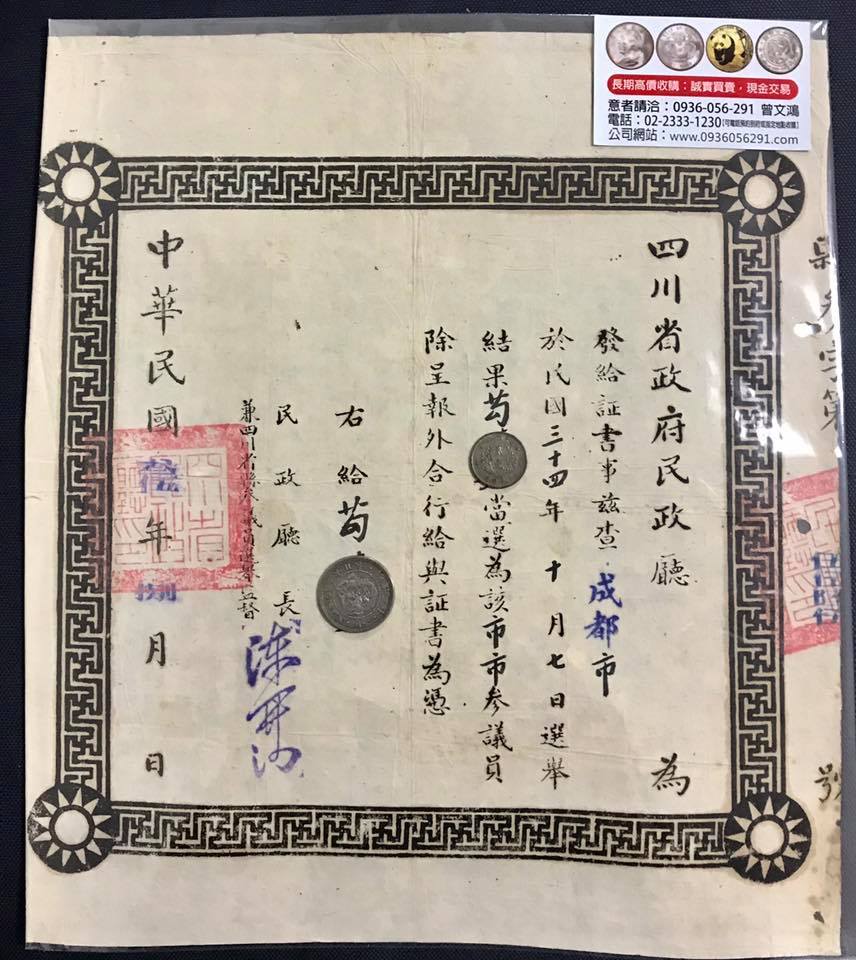 長期高價收購:誠實買賣,現金交易
意者請洽:0936-056-291 曾文鴻
電話:02-2333-1230
公司網站:www.0936056291.com
字第 號
四川省政府民政廳 為
發給証書事茲查成都市
於民國三十四年十月七日選舉
結果芶 當選為該市市參議員
除呈報外合行給與証書為憑
右給芶
民政廳長
兼四川省縣參議員選舉監督
中華民國 年 月 日